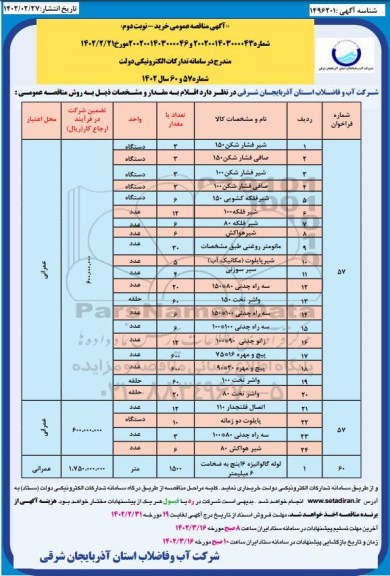 شناسه آگهی: ۱۴۹۶۲۰۱
تاریخ انتشار: ۱۴۰۲/۰۲/۲۷
«آگهی مناقصه عمومی خرید – نوبت دوم»
مندرج در سامانه تدارکات الکترونیکی دولت
شماره ۵۷ و ۶۰ سال ۱۴۰۲
شرکت آب و فاضلاب استان آذربایجان شرقی در نظر دارد اقلام به مقدار و مشخصات ذیل به روش مناقصه عمومی:
شماره فراخوان ردیف نام و مشخصات کالا تعداد یا مقدار واحد تضمین شرکت در فرآیند ارجاع کار (ریال) محل اعتبار
۵۷ ۶۰۰,۰۰۰,۰۰۰ عمرانی
۱ شیر فشار شکن ۱۵۰ ۳ دستگاه
۲ صافی فشار شکن ۱۵۰ ۳ دستگاه
۳ شیر فشار شکن ۱۰۰ ۳ دستگاه
۴ صافی فشار شکن ۱۰۰ ۳ دستگاه
۵ شیرفلکه کشویی ۱۵۰ ۶ دستگاه
۶ شیر فلکه ۱۰۰ ۱۲ عدد
۷ شیر فلکه ۸۰ ۶ عدد
۸ شیر هواکش ۶ عدد
۹ مانومتر روغنی طبق مشخصات ۳۰ عدد
۱۰ شیر پایلوت (مکانیک آب) ۵ عدد
۱۱ شیر سوزنی ۴ عدد
۱۲ سه راه چدنی ۸۰*۱۵۰ ۲۰ عدد
۱۳ واشر تخت ۱۵۰ ۶۰ حلقه
۱۴ سه راه چدنی ۱۰۰*۱۵۰ ۶ عدد
۱۵ سه راه چدنی ۱۰۰*۱۰۰ ۶ عدد
۱۶ زانو چدنی ۹۰*۱۰۰ ۱۲ عدد
۱۷ پیچ و مهره ۱۶*۷۵ ۶۰۰ عدد
۱۸ پیچ و مهره ۲۰*۹۰ ۶۰۰ عدد
۱۹ واشر تخت ۱۰۰ ۶۰ حلقه
۲۰ واشر تخت ۸۰ ۲۰ حلقه
۵۷ ۶۰۰,۰۰۰,۰۰۰ عمرانی
۲۱ اتصال فلنجدار ۱۱۰ ۱۲ عدد
۲۲ پایلوت دو زمانه ۱۰ دستگاه
۲۳ سه راه چدنی ۸۰*۱۰۰ ۳ عدد
۲۴ شیر هواکش ۸۰ ۶ عدد
۶۰ ۱ لوله گالوانیزه ۶ اینچ به ضخامت ۶ میلیمتر ۱۵۰۰ متر ۱,۷۵۰,۰۰۰,۰۰۰ عمرانی
و از طریق سامانه تدارکات الکترونیکی دولت خریداری نماید. کلیه مراحل مناقصه از طریق درگاه سامانه تدارکات الکترونیکی دولت (ستاد) به
آدرس www.setadiran.ir انجام خواهد شد. بدیهی است شرکت در رد یا قبول هر یک از پیشنهادات مختار خواهد بود. هزینه آگهی از
برنده مناقصه اخذ خواهد شد. مهلت فروش اسناد از تاریخ درج آگهی لغایت ۱۹ مورخه ۱۴۰۲/۲/۳۱
آخرین مهلت تسلیم پیشنهادات در سامانه ستاد ایران ساعت ۸ صبح مورخه ۱۴۰۲/۳/۱۶
زمان و تاریخ بازگشایی پیشنهادات در سامانه ستاد ایران ساعت ۱۰ صبح مورخه ۱۴۰۲/۳/۱۶
شرکت آب و فاضلاب استان آذربایجان شرقی